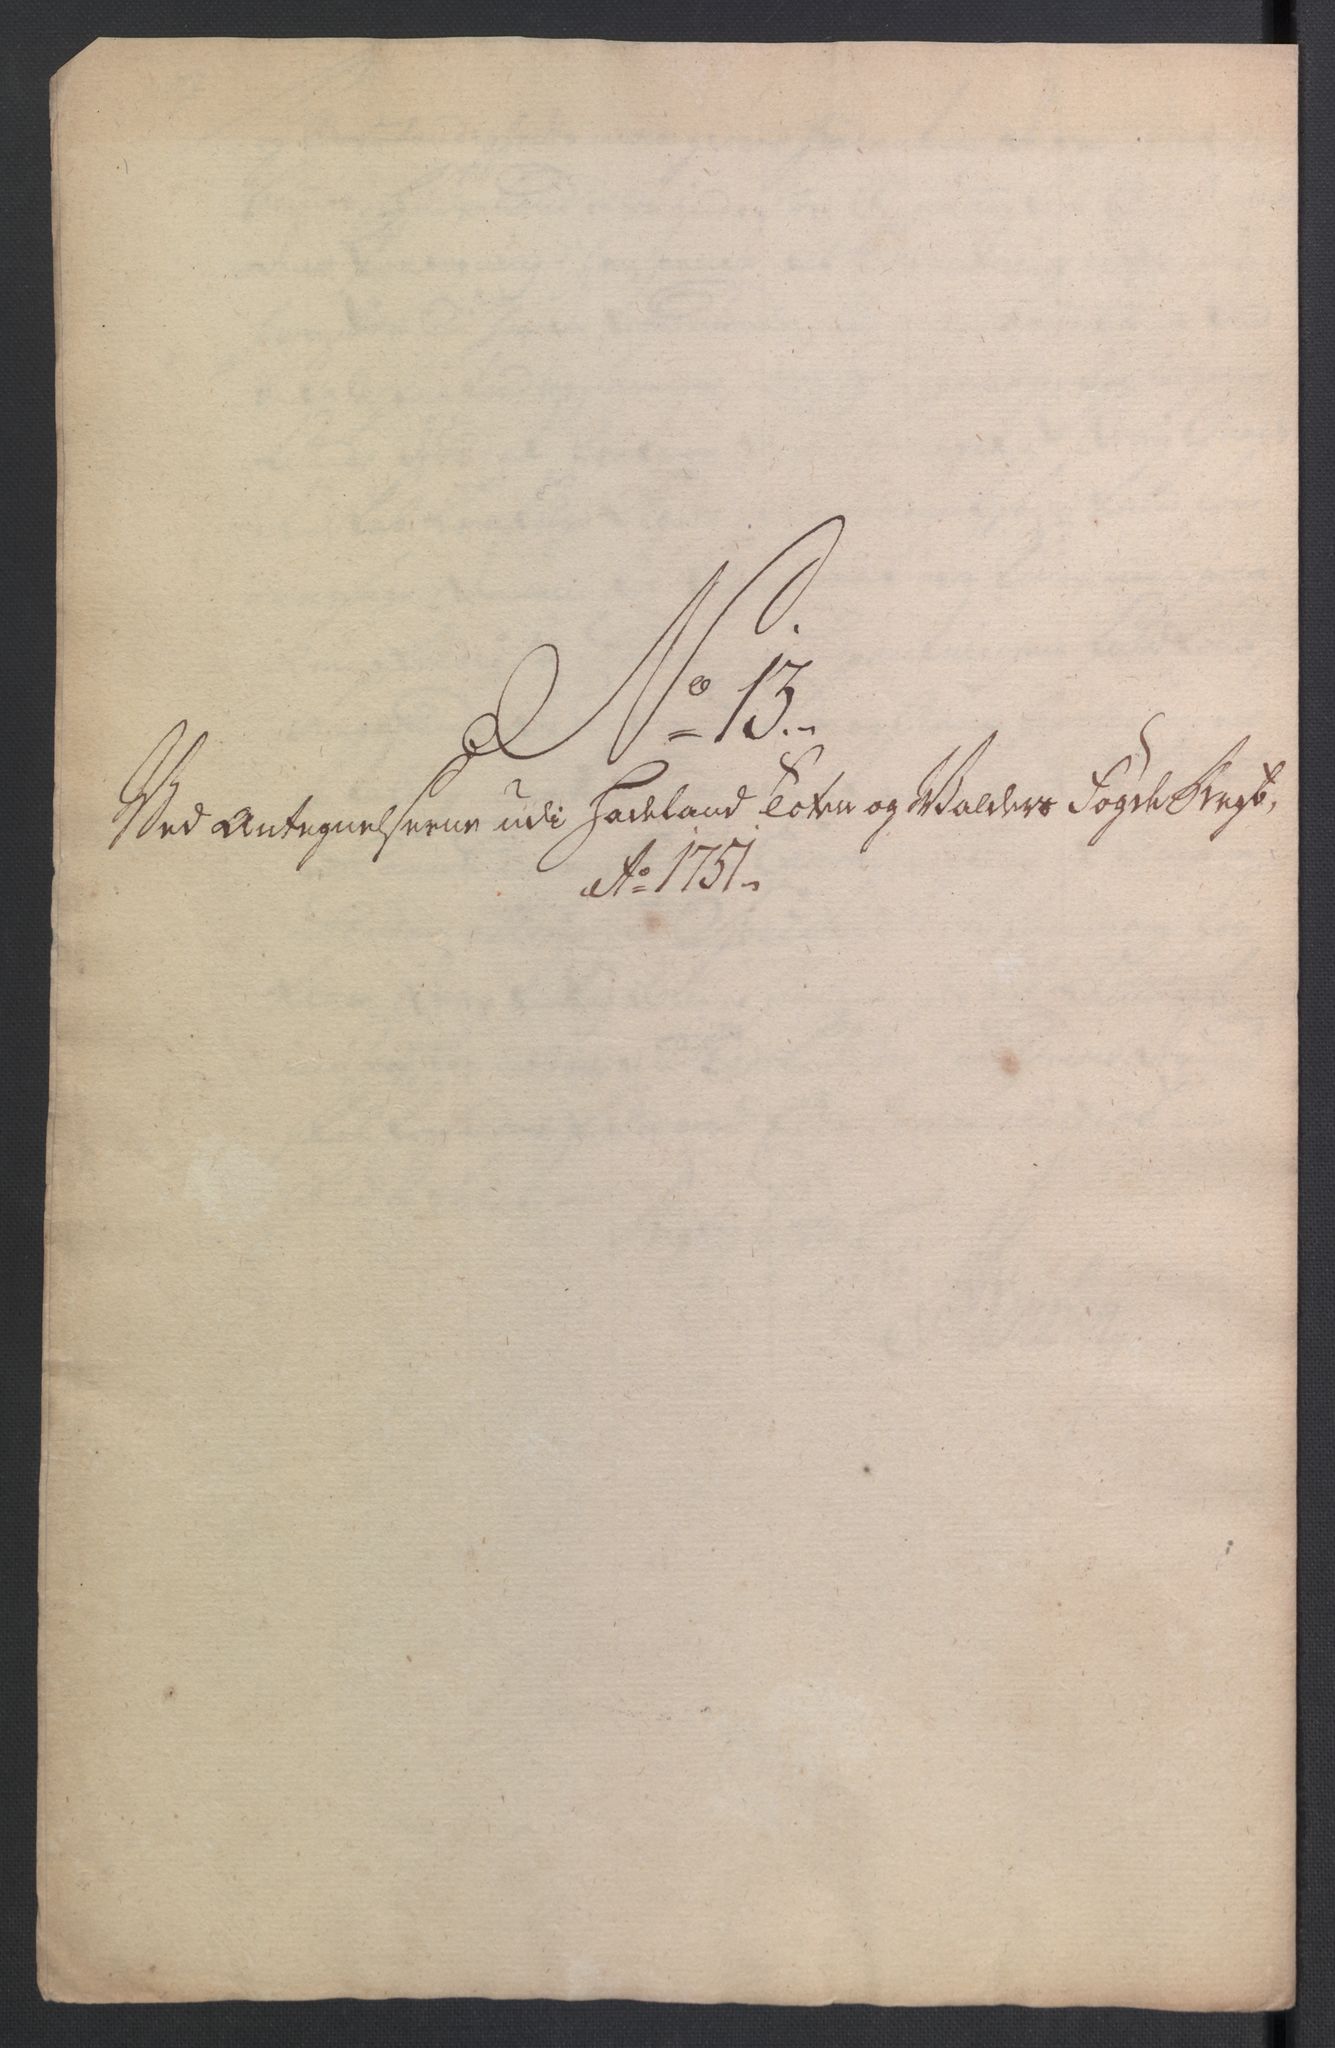 No 13.
Ved Antegnelserne udi Hadeland Toten og Valders Fogde Regb.
Ao 1751.